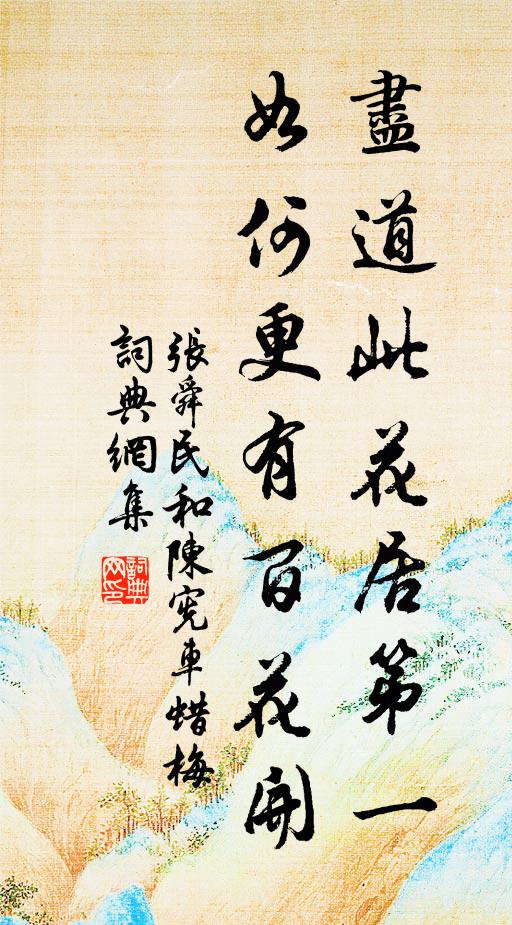 盡道此花居第一
如何更有百花開
張舜民和陳宪車蜡梅
詞典網集
詞典
网印